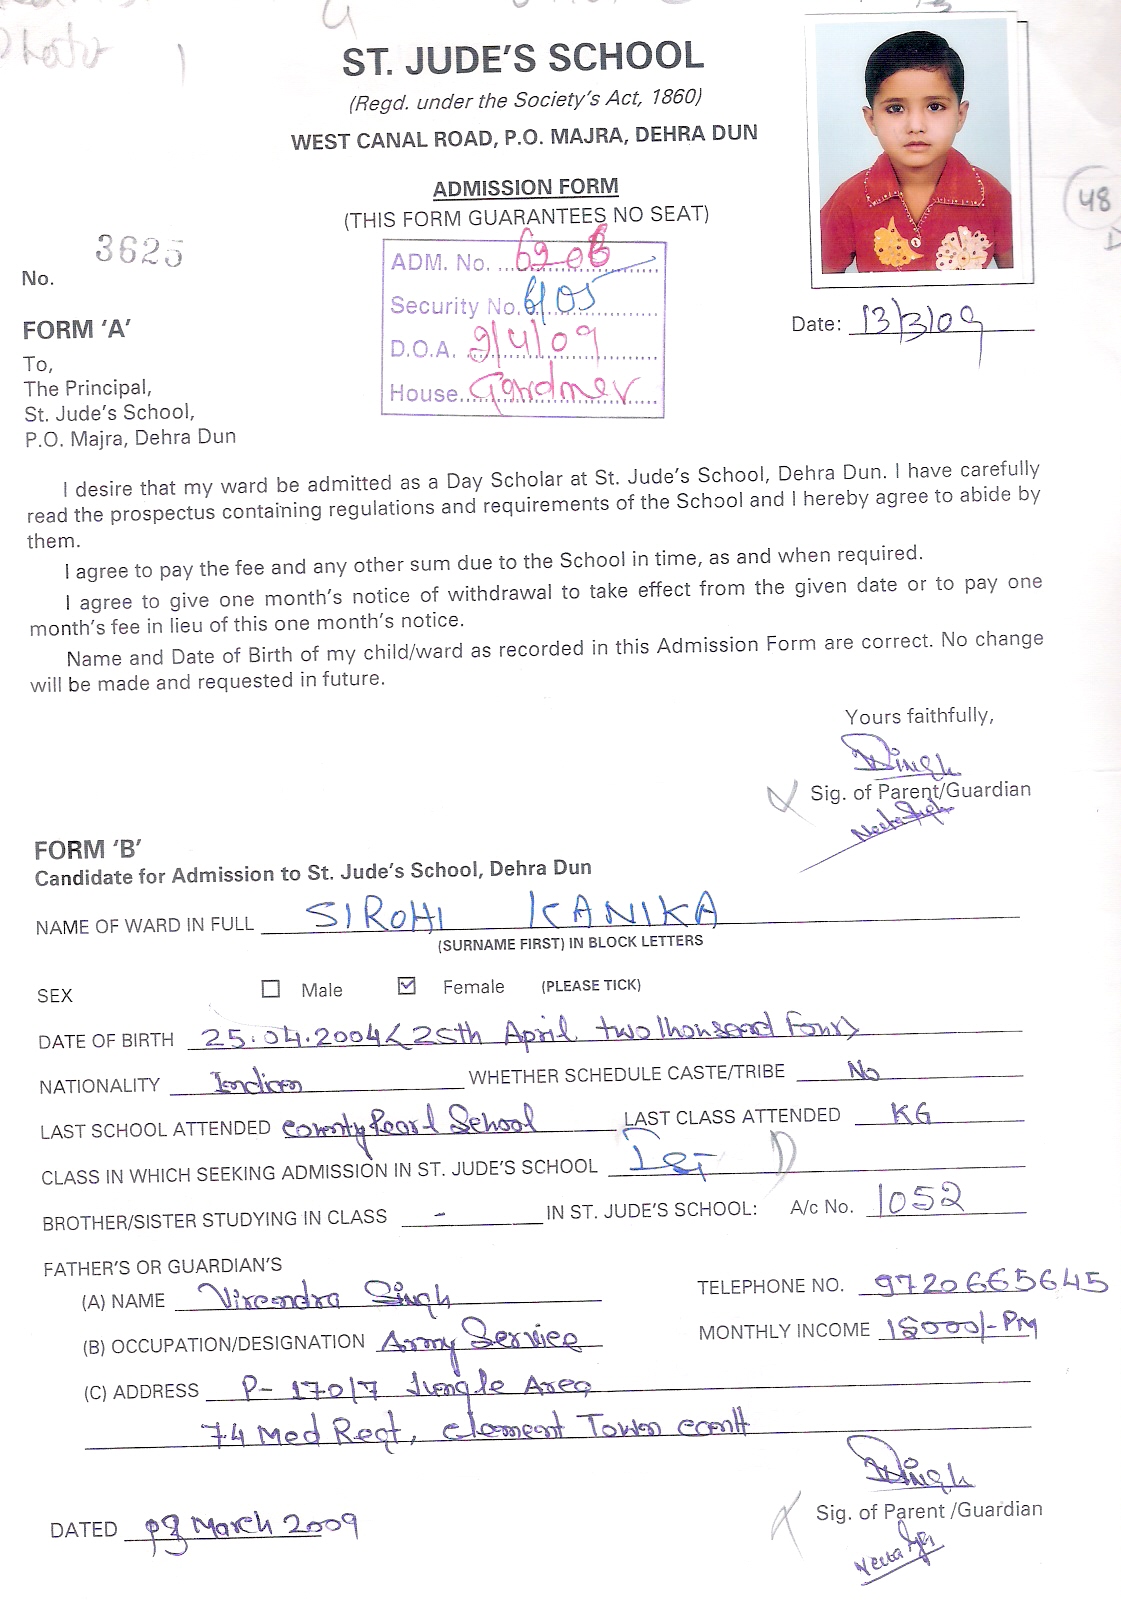 ST. JUDE'S SCHOOL
(Regd. under the Society's Act, 1860)
WEST CANAL ROAD, P.O. MAJRA, DEHRA DUN
ADMISSION FORM
(THIS FORM GUARANTEES NO SEAT)
48
D
3625
No.
ADM. No. 6206
Security No. 6105
D.O.A. 9/4/09
House Gardner
Date: 13/3/09
FORM 'A'
To,
The Principal,
St. Jude's School,
P.O. Majra, Dehra Dun
I desire that my ward be admitted as a Day Scholar at St. Jude's School, Dehra Dun. I have carefully
read the prospectus containing regulations and requirements of the School and I hereby agree to abide by
them.
I agree to pay the fee and any other sum due to the School in time, as and when required.
I agree to give one month's notice of withdrawal to take effect from the given date or to pay one
month's fee in lieu of this one month's notice.
Name and Date of Birth of my child/ward as recorded in this Admission Form are correct. No change
will be made and requested in future.
Yours faithfully,
Singh
Sig. of Parent/Guardian
Neeta Singh
FORM 'B'
Candidate for Admission to St. Jude's School, Dehra Dun
NAME OF WARD IN FULL SIROHI KANIKA
(SURNAME FIRST) IN BLOCK LETTERS
SEX Male Female (PLEASE TICK)
DATE OF BIRTH 25.04.2004 (25th April two thousand Four)
NATIONALITY Indian WHETHER SCHEDULE CASTE/TRIBE No
LAST SCHOOL ATTENDED Pearl School LAST CLASS ATTENDED KG
CLASS IN WHICH SEEKING ADMISSION IN ST. JUDE'S SCHOOL Ist D
BROTHER/SISTER STUDYING IN CLASS - IN ST. JUDE'S SCHOOL: A/c No. 1052
FATHER'S OR GUARDIAN'S
(A) NAME Virendra Singh TELEPHONE NO. 9720665645
(B) OCCUPATION/DESIGNATION Army Service MONTHLY INCOME 18000/- PM
(C) ADDRESS P-170/7 Jungle Area
74 Med Regt, Clement Town cantt
Singh
Sig. of Parent /Guardian
DATED March 2009
Neeta